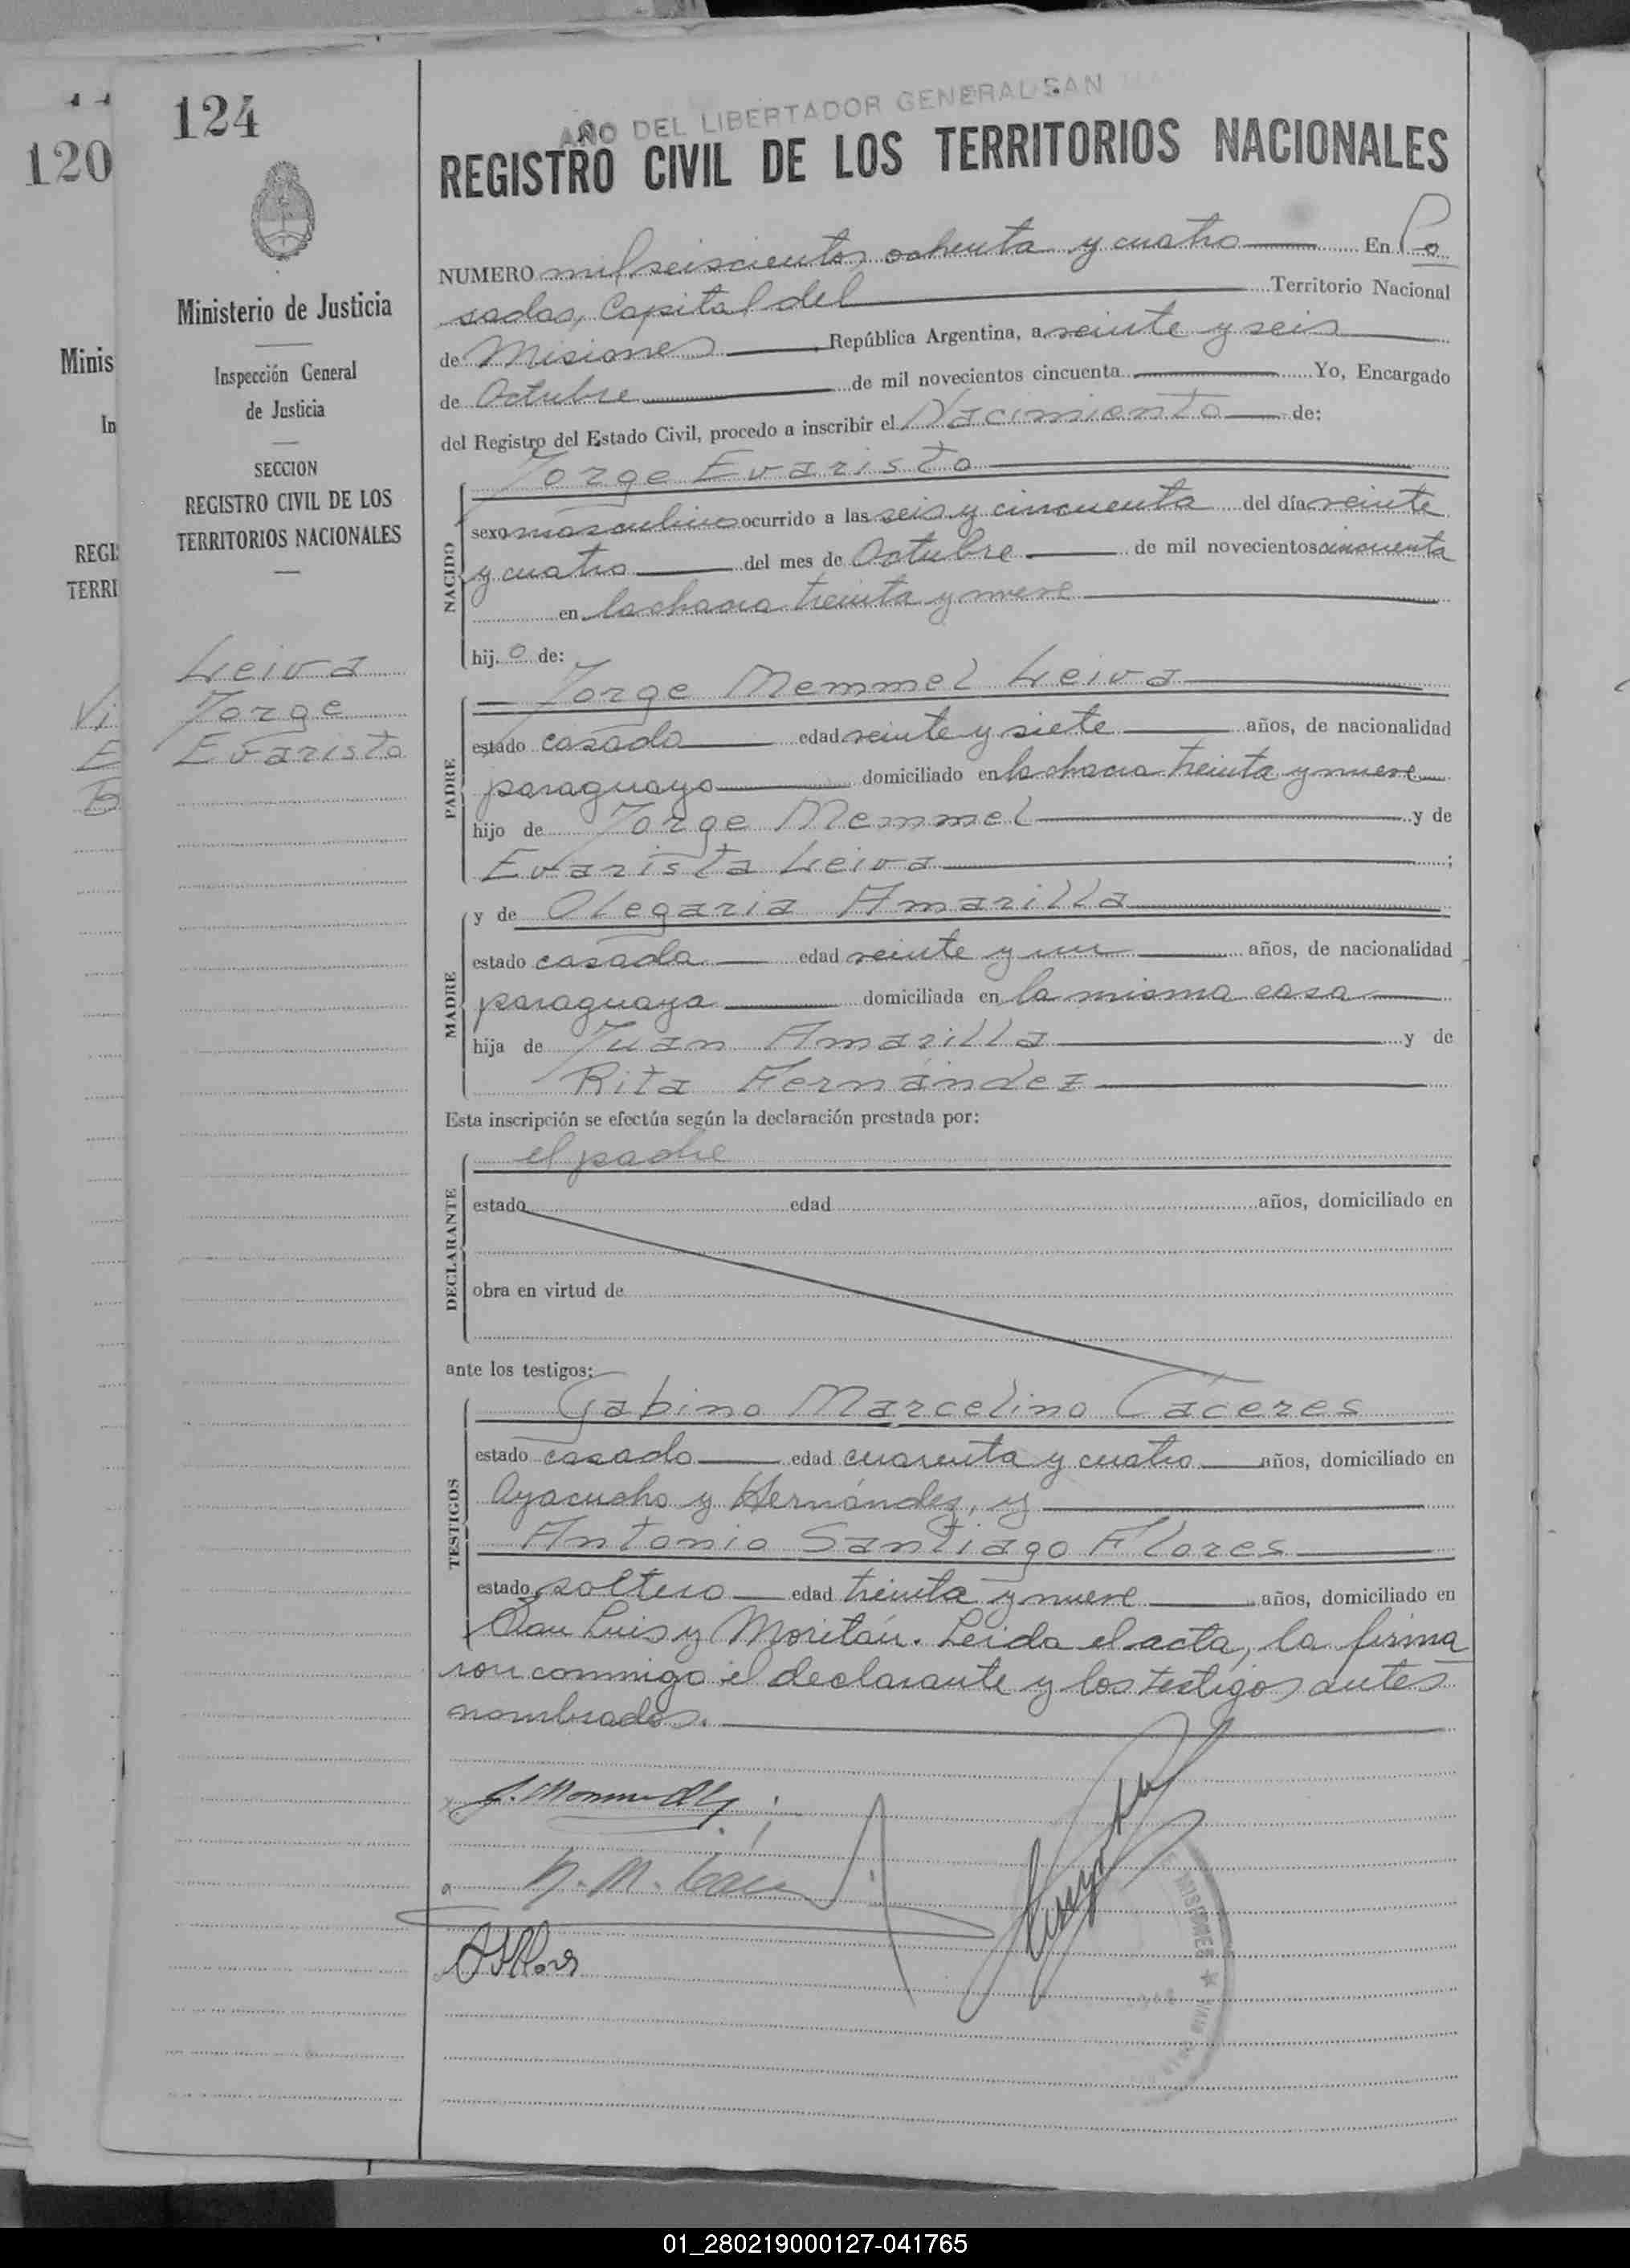 120
Minis
In
REGI
TERRI
Vi
E
124
Ministerio de Justicia
Inspección General
de Justicia
SECCION
REGISTRO CIVIL DE LOS
TERRITORIOS NACIONALES
Leiva
Jorge
Evaristo
AÑO DEL LIBERTADOR GENERAL SAN
REGISTRO CIVIL DE LOS TERRITORIOS NACIONALES
NUMERO mil seiscientos ochenta y cuatro En Po
sadas, Capital del Territorio Nacional
de Misiones, República Argentina, a veinte y seis
de Octubre de mil novecientos cincuenta Yo, Encargado
del Registro del Estado Civil, procedo a inscribir el Nacimiento de:
Jorge Evaristo
NACIDO
sexo masculino ocurrido a las seis y cincuenta del día veinte
y cuatro del mes de Octubre de mil novecientos cincuenta
en la chacra treinta y nueve
hijo de:
Jorge Memmel Leiva
PADRE
estado casado edad veinte y siete años, de nacionalidad
paraguayo domiciliado en la chacra treinta y nueve
hijo de Jorge Memmel y de
Evarista Leiva ;
y de Olegaria Amarilla
MADRE
estado casada edad veinte y un años, de nacionalidad
paraguaya domiciliada en la misma casa
hija de Juan Amarilla y de
Rita Fernández
Esta inscripción se efectúa según la declaración prestada por:
el padre
DECLARANTE
estado edad años, domiciliado en
obra en virtud de
ante los testigos:
Gabino Marcelino Cáceres
TESTIGOS
estado casado edad cuarenta y cuatro años, domiciliado en
Ayacucho y Hernández, y
Antonio Santiago Flores
estado soltero edad treinta y nueve años, domiciliado en
San Luis y Moritán. Leida el acta, la firma
ron conmigo el declarante y los testigos antes
nombrados.
MISIONES
01_280219000127-041765